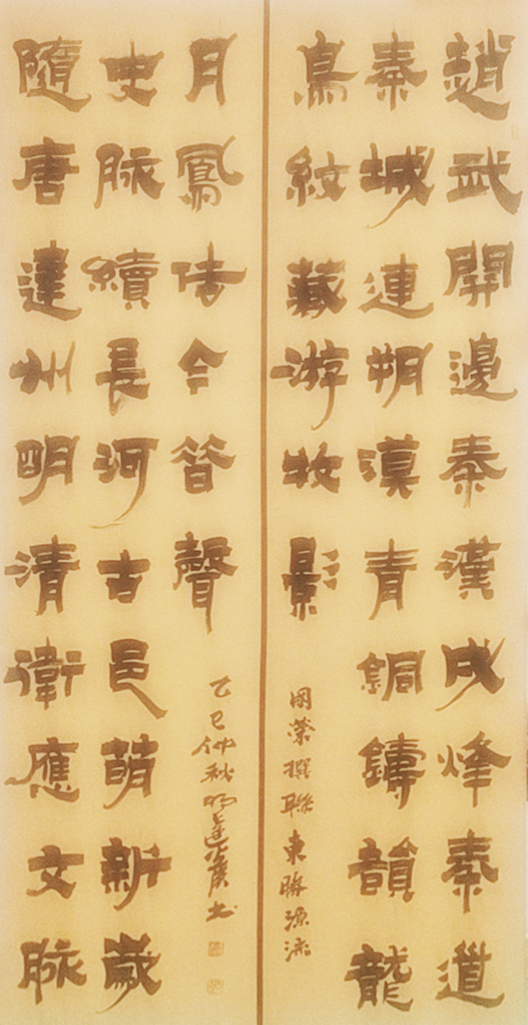 趙武開邊秦漢戍烽秦道
秦城連朔漠青銅鑄韻龍
鳥紋藏游牧影
國榮撰聯東勝
隨唐建州明清衛應文脉
史脉續長河古邑萌新歲
月鳳传今昔聲
乙巳仲秋